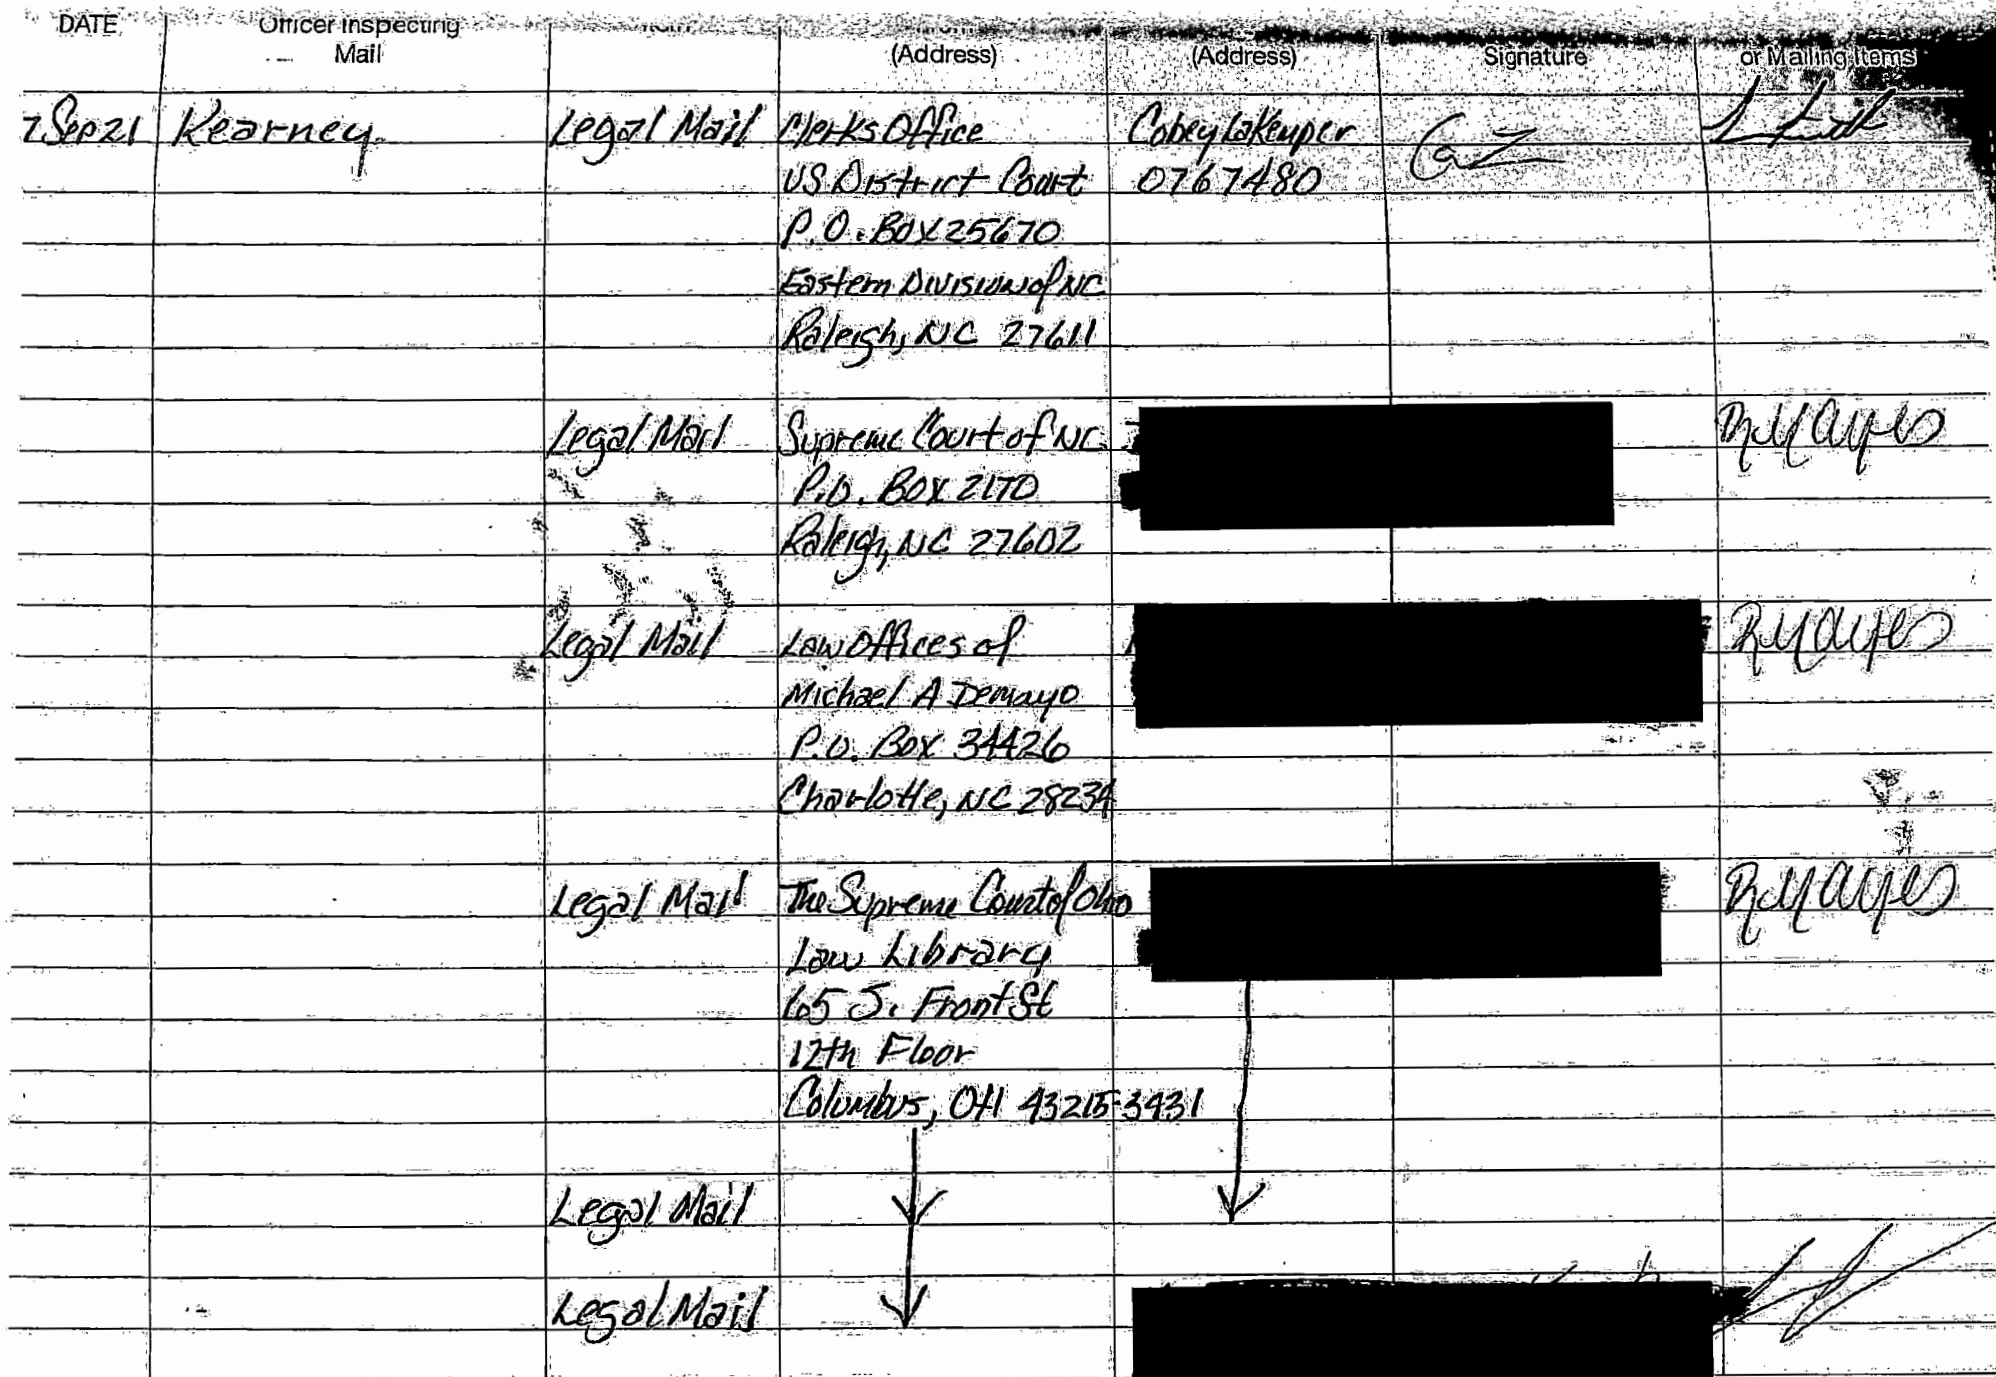 DATE Officer Inspecting Mail (Address) (Address) Signature or Mailing Items
7 Sep 21 Kearney Legal Mail Clerks Office Cobey LaKemper
US District Court 0767480
P.O. Box 25670
Eastern Division of NC
Raleigh, NC 27611
Legal Mail Supreme Court of NC
P.O. Box 2170
Raleigh, NC 27602
Legal Mail Law Offices of
Michael A Demayo
P.O. Box 34426
Charlotte, NC 28234
Legal Mail The Supreme Court of Ohio
Law Library
65 S. Front St
12th Floor
Columbus, OH 43215-3431
Legal Mail
Legal Mail